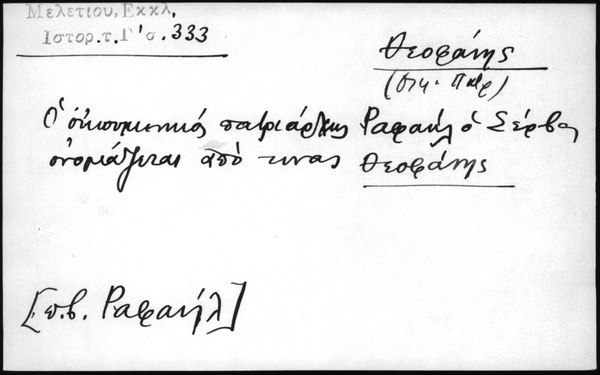 Μελετίου, Εκκλ.
Ιστορ.τ.Γ' σ. 333
Θεοφάνης
(Οικ. Πατρ)
Ὁ οἰκουμενικός πατριάρχης Ραφαήλ ὁ Σέρβος
ὀνομάζεται ἀπό τινας Θεοφάνης
[π.β. Ραφαήλ]